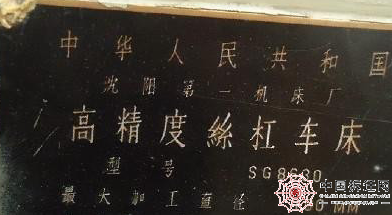 中华人民共和国
沈阳第一机床厂
高精度絲杠车床
型号 SG8630
最大加工直径 MM
中国标准网